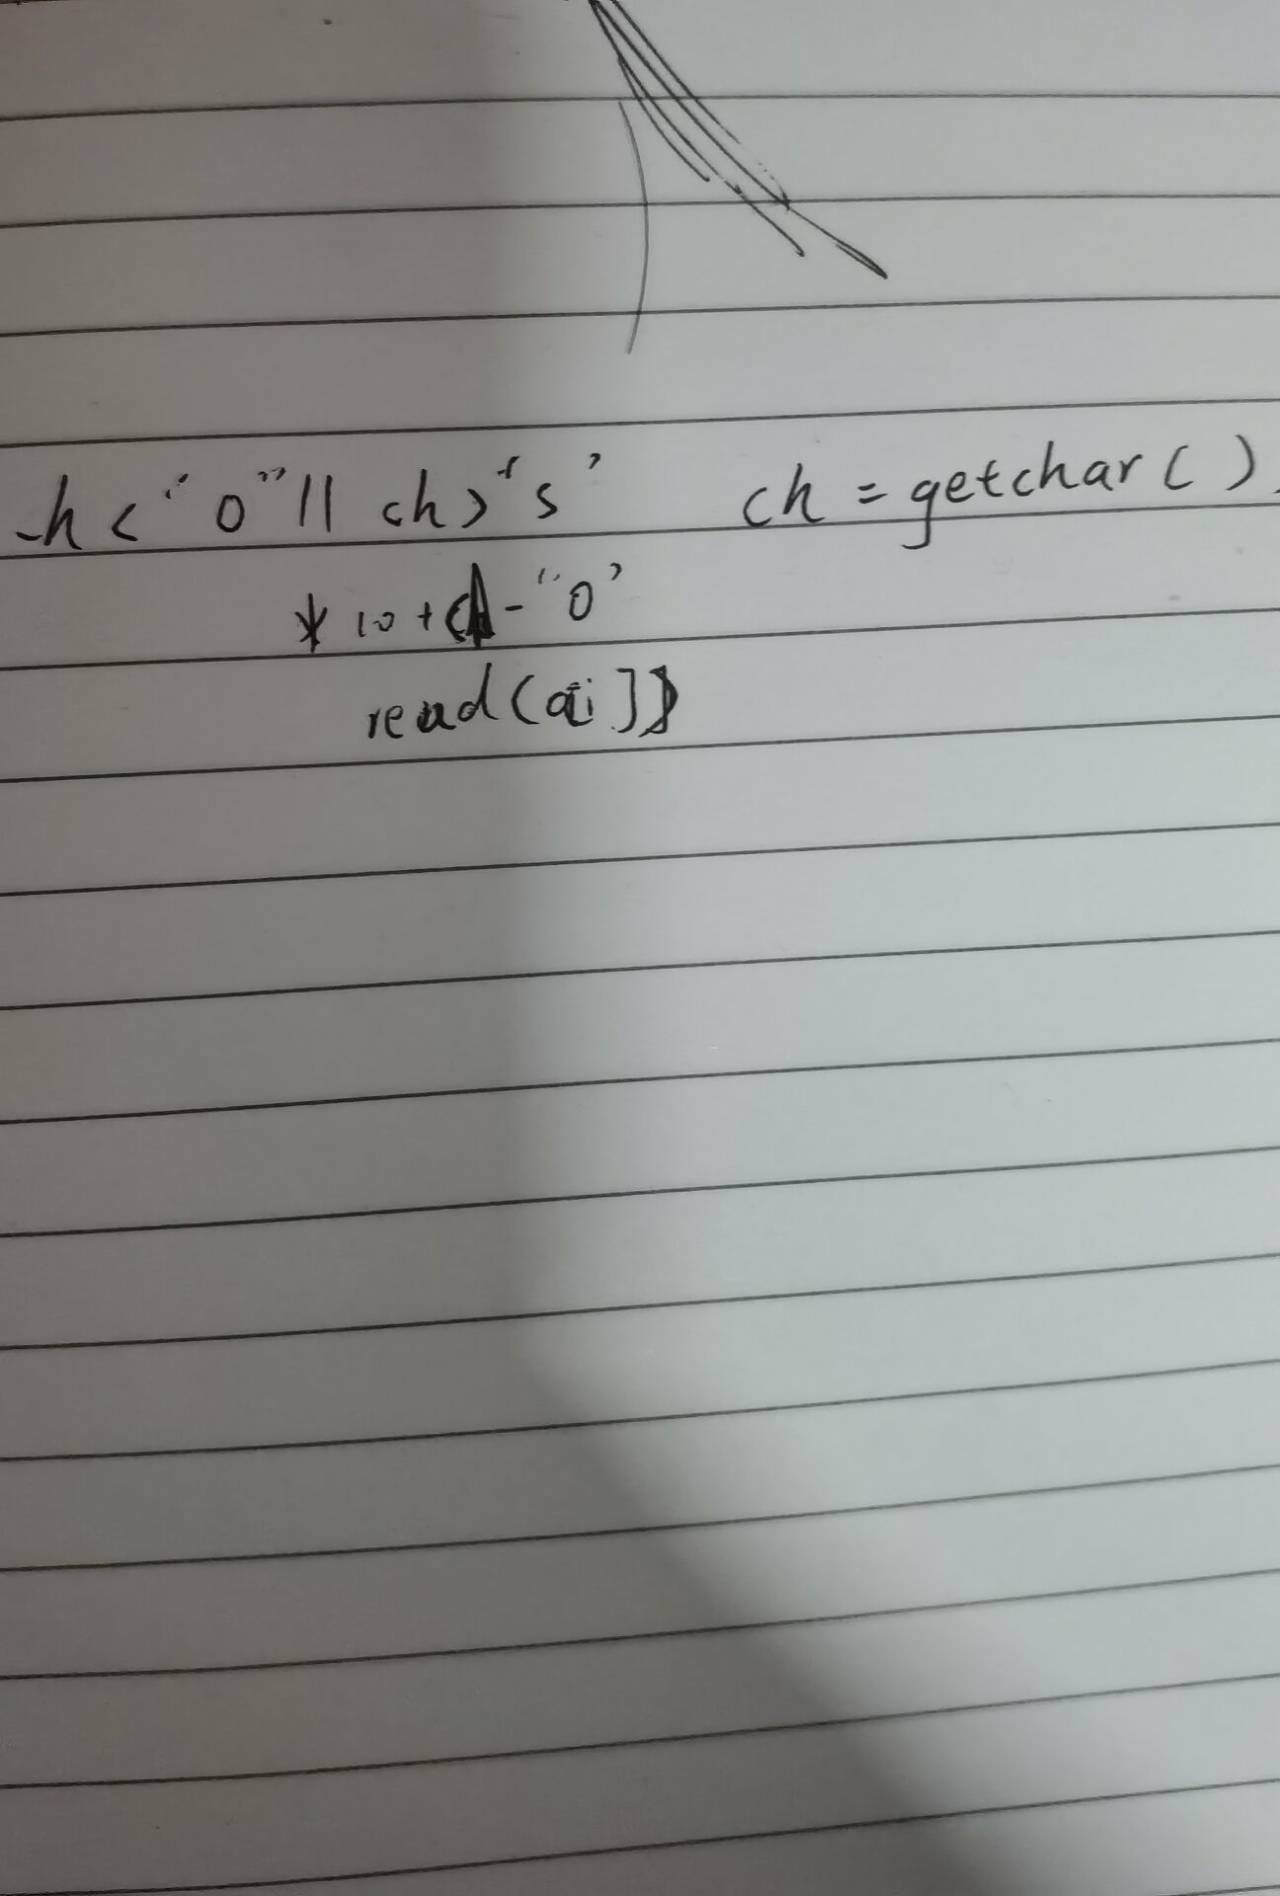 ch < "0" || ch > 's' ch = getchar()
* 10 + ch - "0'
read(a[i])